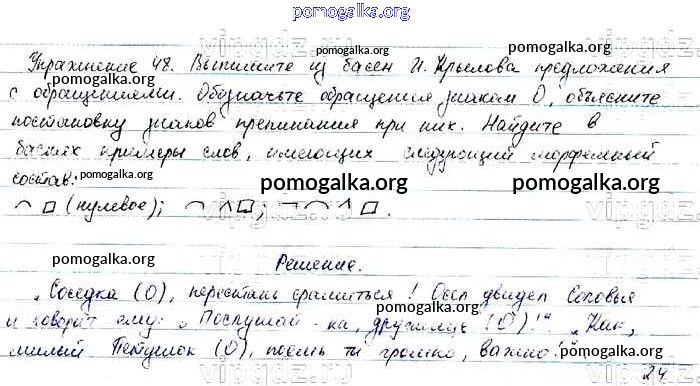 pomogalka.org
Упражнение 48. Выпишите из басен И. Крылова предложения
с обращениями. Обозначьте обращения знаком О, объясните
постановку знаков препинания при них. Найдите в
баснях примеры слов, имеющих следующий морфемный
состав:
(нулевое);
pomogalka.org
pomogalka.org
pomogalka.org
pomogalka.org
pomogalka.org
pomogalka.org
vipgdz.ru
Решение.
„Соседка (О), перестань срамиться! Осёл увидел Соловья
и говорит ему: „Послушай-ка, дружище (О)!“ „Как,
милый Петушок (О), поёшь ты громко, важно!“
pomogalka.org
pomogalka.org
pomogalka.org
vipgdz.ru
24